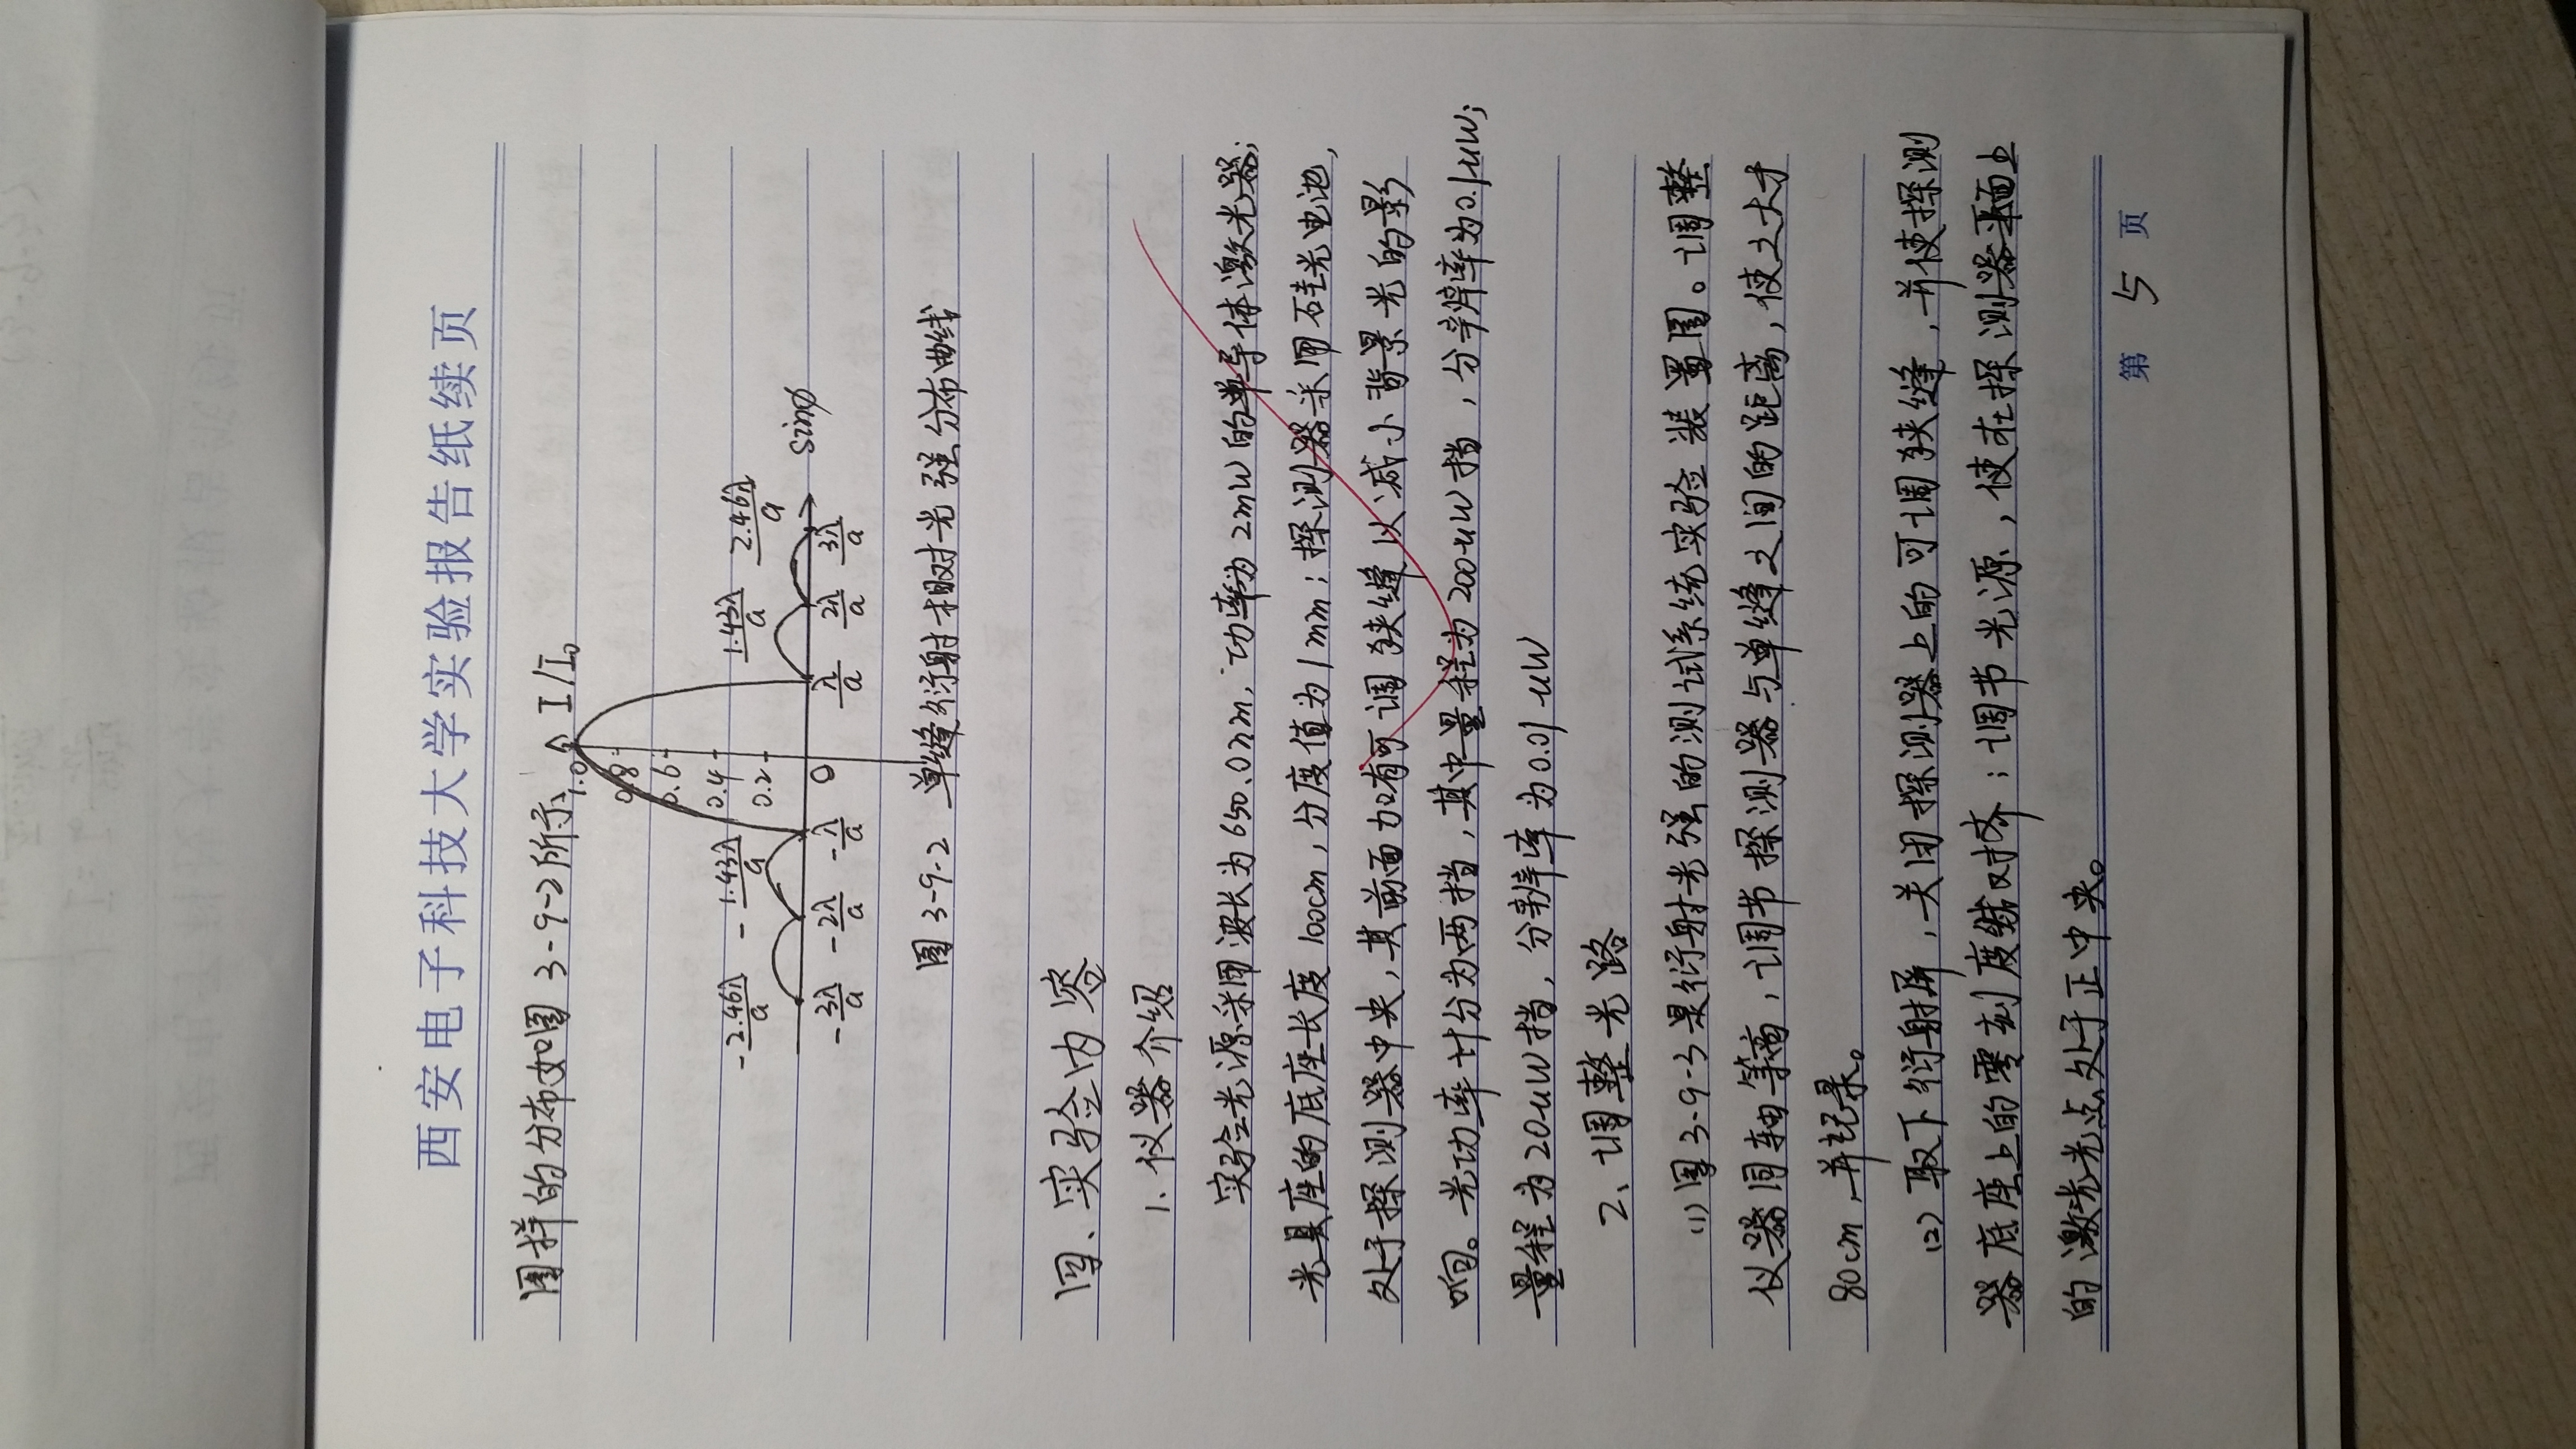 西安电子科技大学实验报告纸续页
图样的分布如图 3-9-2所示
I/I₀
1.0
0.8
0.6
0.4
0.2
-2.46λ/a -1.43λ/a 1.43λ/a 2.46λ/a
sinφ
-3λ/a -2λ/a -λ/a 0 λ/a 2λ/a 3λ/a
图 3-9-2 单缝衍射相对光强分布曲线
四、实验内容
1. 仪器介绍
实验光源采用波长为650.0nm,功率为2mW的半导体激光器;
光具座的底座长度100cm,分度值为1mm;探测器采用硅光电池,
处于探测器中央,其前面加有可调狭缝以减小背景光的影
响。光功率计分为两挡,其中量程为200uW挡,分辨率为0.1uW;
量程为20uW挡,分辨率为0.01uW
2、调整光路
(1)图3-9-3是衍射光强的测试系统实验装置图。调整
仪器同轴等高,调节探测器与单缝之间的距离,使之大于
80cm,并记录。
(2)取下衍射屏,关闭探测器上的可调狭缝,并使探测
器底座上的零刻度线对齐;调节光源,使在探测器平面上
的激光光点处于正中央。
第 5 页